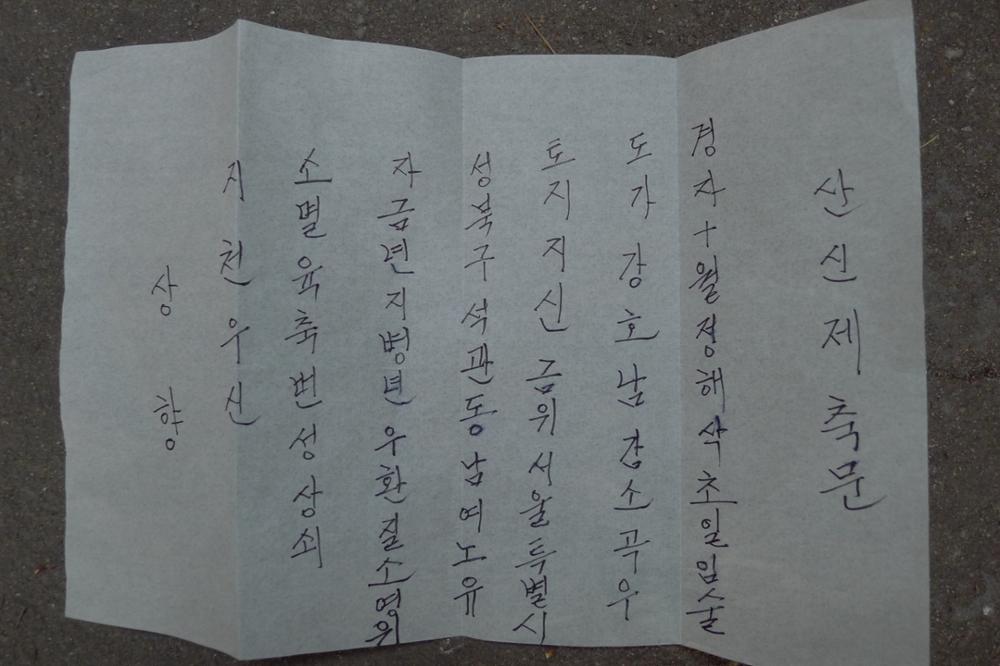 산신제축문
경자十월정해삭초일임술
도가강호남감소곡우
토지지신금위서울특별시
성북구석관동남여노유
자금년지병년우환질소영위
소멸육축번성상쇠
지천우신
상향